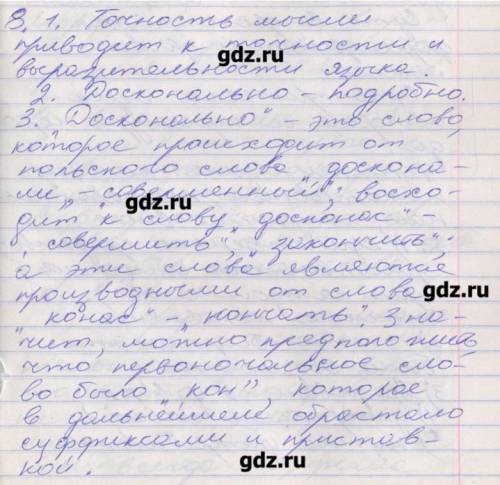 8. 1. Точность мысли
приводит к точности и
выразительности языка.
gdz.ru
2. Досконально – подробно.
3. „Досконально" – это слово,
которое происходит от
польского слова „доскона-
gdz.ru
ле" – „совершенный"; восхо-
дит к слову „досконас" –
„совершить", „закончить",
а эти слова являются
производными от слова
gdz.ru
„конас" – „кончать". Зна-
чит, можно предположить,
что первоначальное сло-
во было „кон", которое
в дальнейшем обрастало
суффиксами и пристав-
кой.
gdz.ru